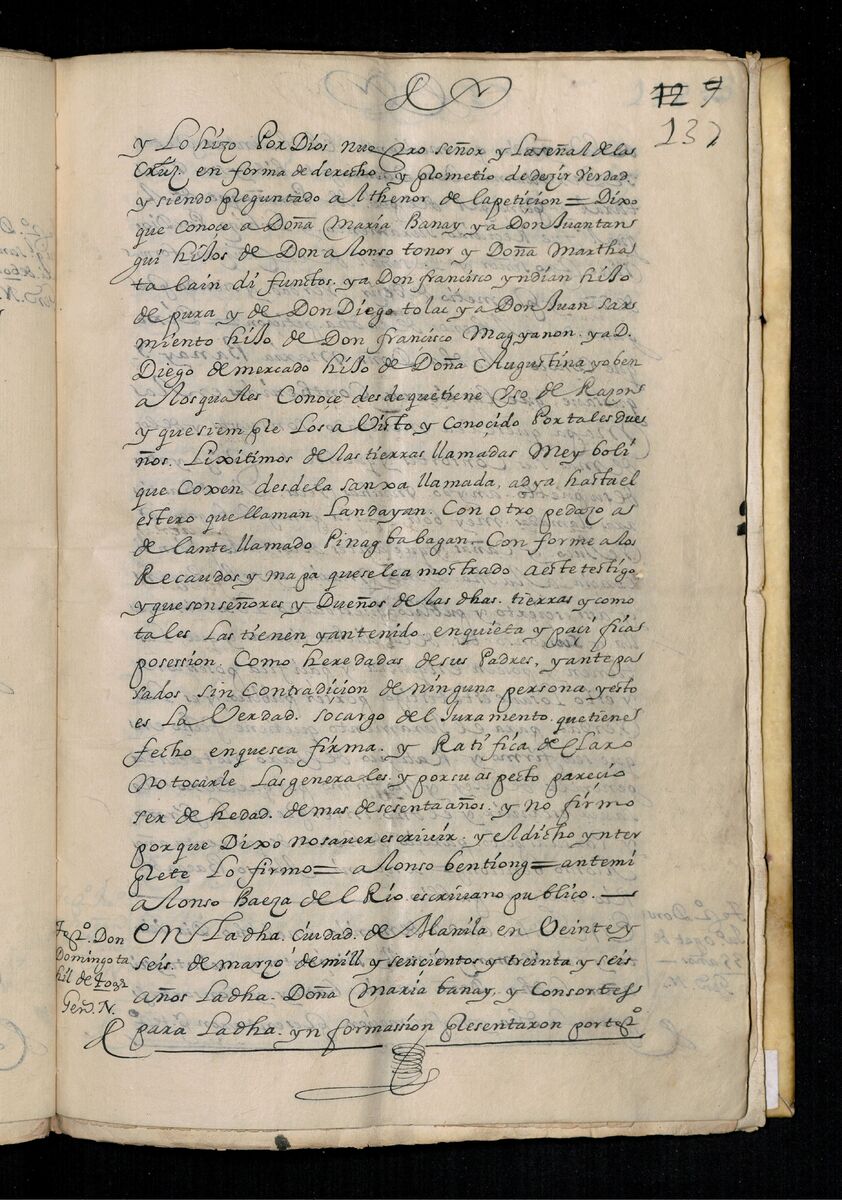 12 7
132
y Lo hizo Por Dios nuestro señor y Laseñal de las
Cruz. en forma de derecho. y plometio de dezir verdad
y siendo pleguntado al thenor de la peticion = Dixo
que conoce a Doña Maria Banay ya Don Juan tan
gui hijos de Don alonso tonor y Doña Martha
ta lain di functos. ya Don francisco yndian hijo
de pura y de Don Diego tolac ya Don Juan sar
miento hijo de Don francisco Magyanon. ya D.
Diego de mercado hijo de Doña Augustina yoben
a los quales Conoce desde que tiene Uso de Razon
y que siemple Los a Visto y conocido Por tales due
ños. Lixitimos de las tierras llamadas Mey boli
que Coxen desde la sanxa llamada, adya hasta el
estero que llaman Landayan. Con otro pedazo as
de lante llamado Pinagbabagan. Con forme a los
Recaudos y mapa que se le a mostrado a este testigo
y que son señores y Dueños de las dhas. tierras y como
tales Las tienen yantenido. enquieta y paci fica
posession. Como heredadas de sus Padres, yante pa
sados sin Contradicion de ninguna persona. yesto
es La Verdad. so cargo del Juramento. que tiene
fecho enquesea firma. y Ratifica declaro
No tocarle Las generales. y porsu aspecto parecio
ser de hedad. de mas de sesenta años. y no firmo
porque Dixo nosaver escrivir. y el dicho ynter
plete Lo firmo = alonso bentiong = antemi
alonso Baeza del Rio. escrivano publico. —
Tesº. Don
Domingo ta
hil de
Gerō. N.
EN Ladha. ciudad. de Manila en Veinte y
seis. de marzo de mill y seiscientos y treinta y seis
años Ladha. Doña Maria banay, y Consortes
para Ladha. yn formassion plesentaron por tesº